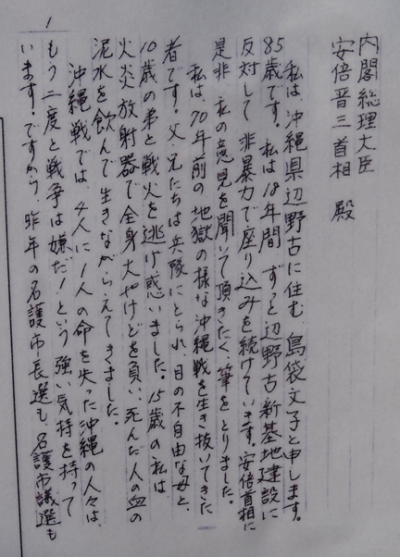 内閣総理大臣
安倍晋三首相 殿
私は、沖縄県辺野古に住む 島袋文子と申します。
85歳です。私は18年間 ずっと辺野古新基地建設に
反対して 非暴力で座り込みを続けています。安倍首相に
是非 私の意見を聞いて頂きたく、筆をとりました。
私は、70年前の地獄の様な沖縄戦を生き抜いてきた
者です。父、兄たちは兵隊にとられ、目の不自由な母と、
10歳の弟と戦火を逃げ惑いました。15歳の私は
火炎放射器で全身大やけどを負い、死んだ人の血の
泥水を飲んで生きながらえてきました。
沖縄戦では、4人に1人の命を失った沖縄の人々は、
もう二度と戦争は嫌だ!という 強い気持を持って
います。ですから、昨年の名護市長選も、名護市議選も
1